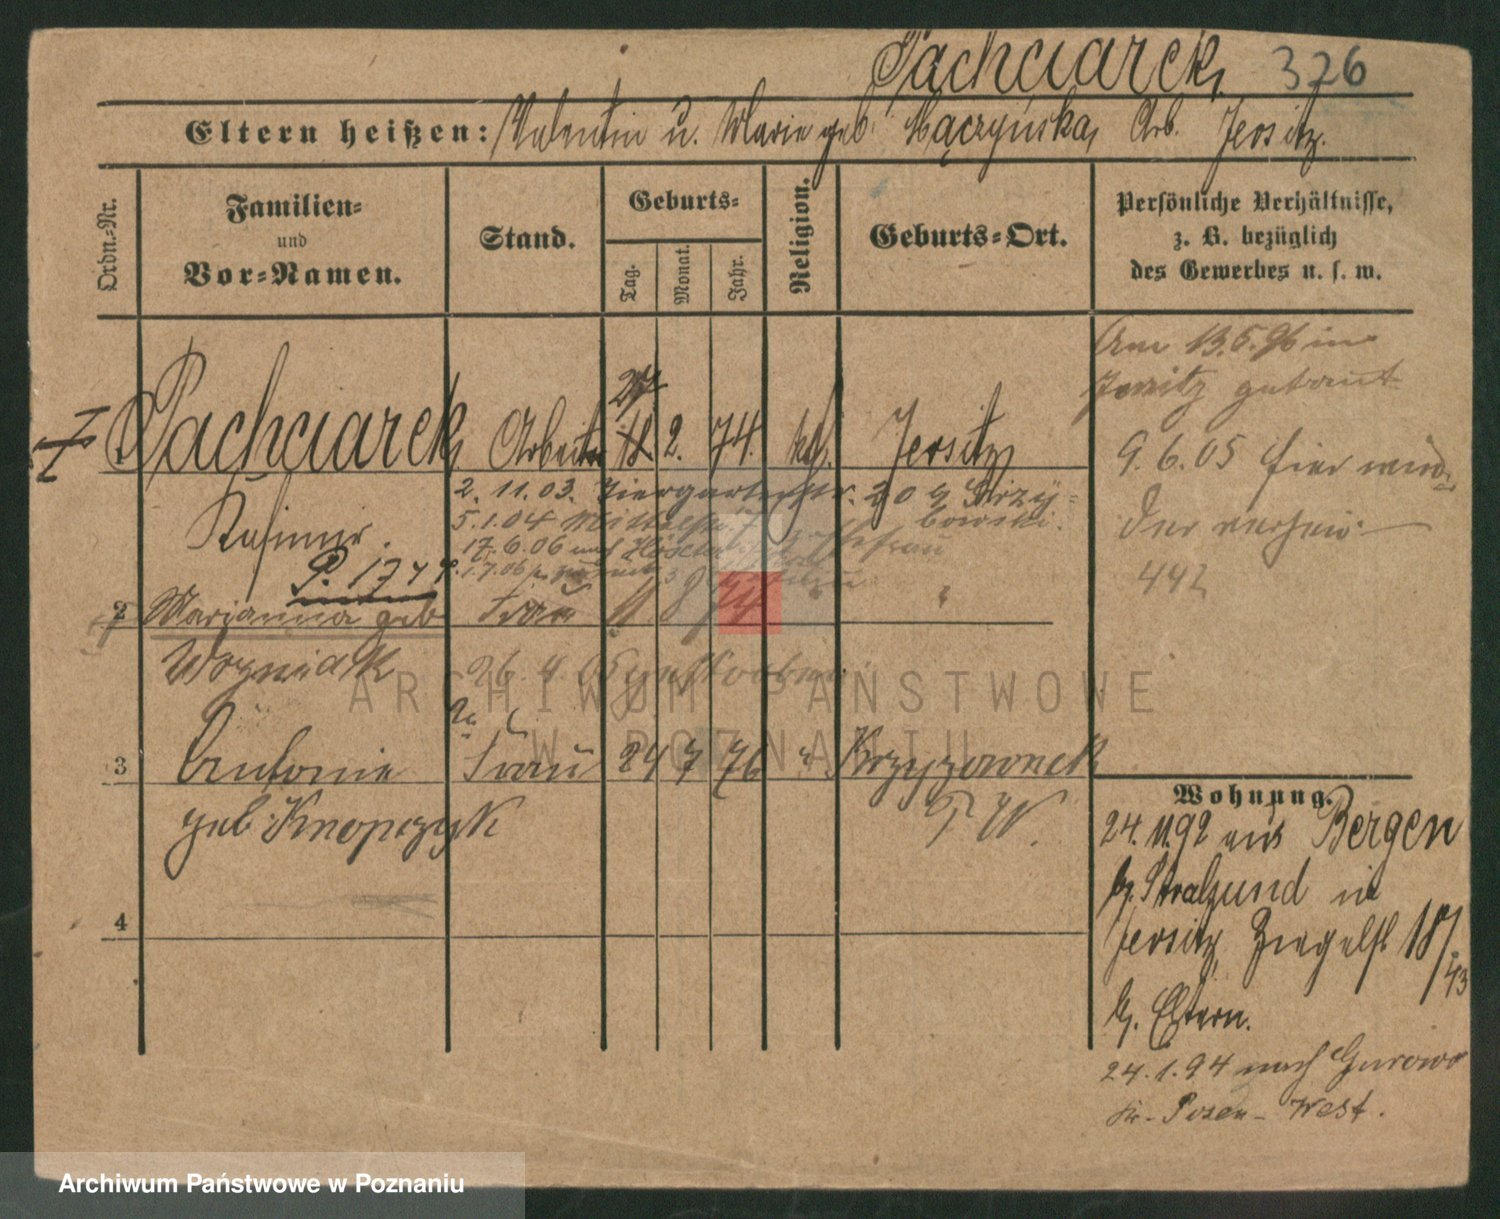 Pachciarek, 326
Eltern heißen: Valentin u. Marie geb. Mączyńska, Arb. Jersitz.
Ordn.-Nr.
Familien-
und
Vor-Namen.
Stand.
Geburts-
Tag.
Monat.
Jahr.
Religion.
Geburts-Ort.
Persönliche Verhältnisse,
z. B. bezüglich
des Gewerbes u. s. w.
Am 13.5.96 in
Jersitz getraut
27
Pachciarek, Arbeiter 18. 2. 74. kth. Jersitz
9.6.05 hier
2. 11. 03. Tiergartenstr.
Kasimir.
5.1.04
17.6.06 nach
P. 1744
1.7.06
442
2 Marianna geb Frau 11 8 74 " "
Wozniak
26. 4. 05 gestorben
2c
3 Antonie Frau 24 7 76 " Krzyzownik
geb. Knopczyk P. W.
4
Wohnung.
24.11.92 aus Bergen
b. Stralsund in
Jersitz, Ziegelst. 18/
43
b. Eltern.
24.1.94 nach Gurowo
Kr. Posen-West.
ARCHIWUM PAŃSTWOWE
W POZNANIU
Archiwum Państwowe w Poznaniu